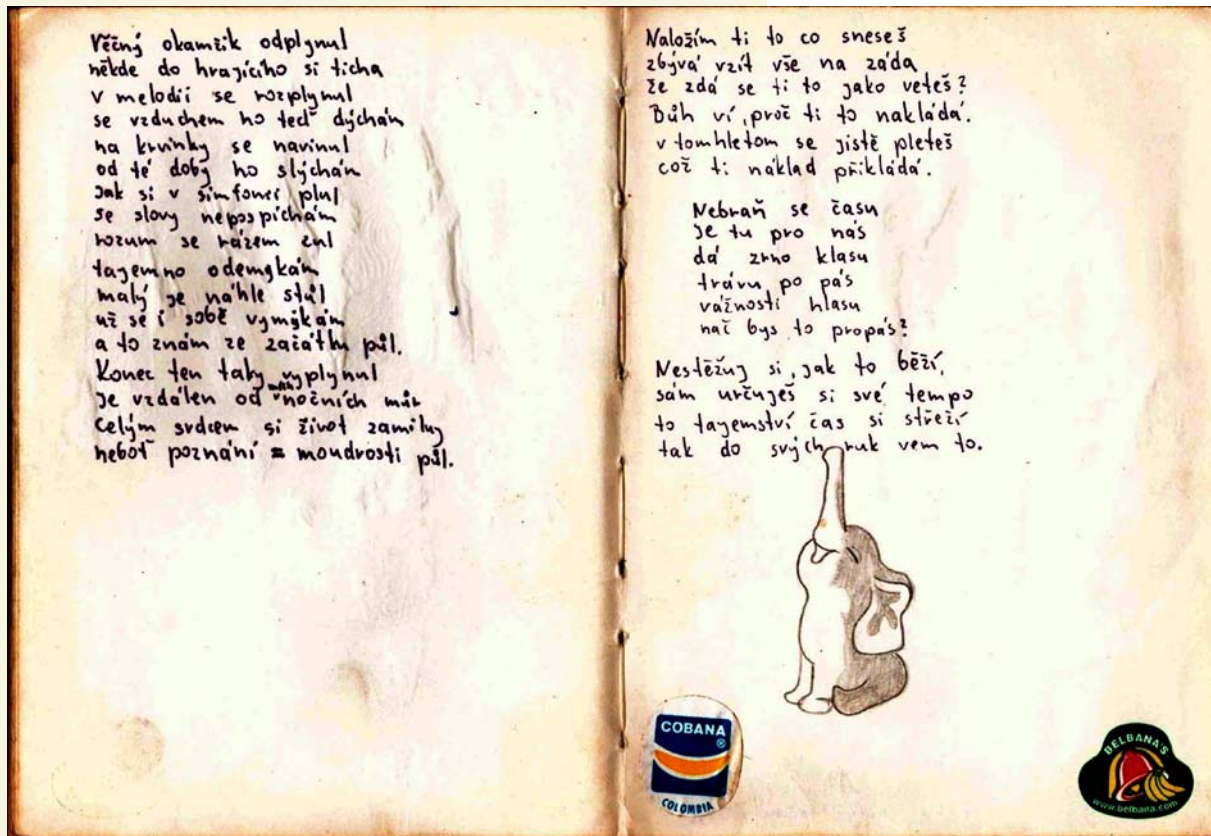 Věčný okamžik odplynul
někde do hrajícího si ticha
v melodii se rozplynul
se vzduchem ho teď dýchám
na krvinky se navinul
od té doby ho slýchám
Jak si v simfonii plul
se slovy nepospíchám
rozum se rázem zul
tajemno odemykám
malý je náhle stůl
už se i sobě vymykám
a to znám ze začátku půl.
Konec ten taky vyplynul
je vzdálen od nočních můr
Celým srdcem si život zamiluj
neboť poznání = moudrosti půl.
Naložím ti to co sneseš
zbývá vzít vše na záda
že zdá se ti to jako veteš?
Bůh ví, proč ti to nakládá.
v tomhletom se jistě pleteš
což ti náklad přikládá.
Nebraň se času
Je tu pro nás
dá zrno klasu
trávu po pás
vážnosti hlasu
nač bys to propás?
Nestěžuj si, jak to běží,
sám určuješ si své tempo
to tajemství čas si střeží
tak do svých ruk vem to.
COBANA
®
COLOMBIA
BELBANA'S
www.belbana.com